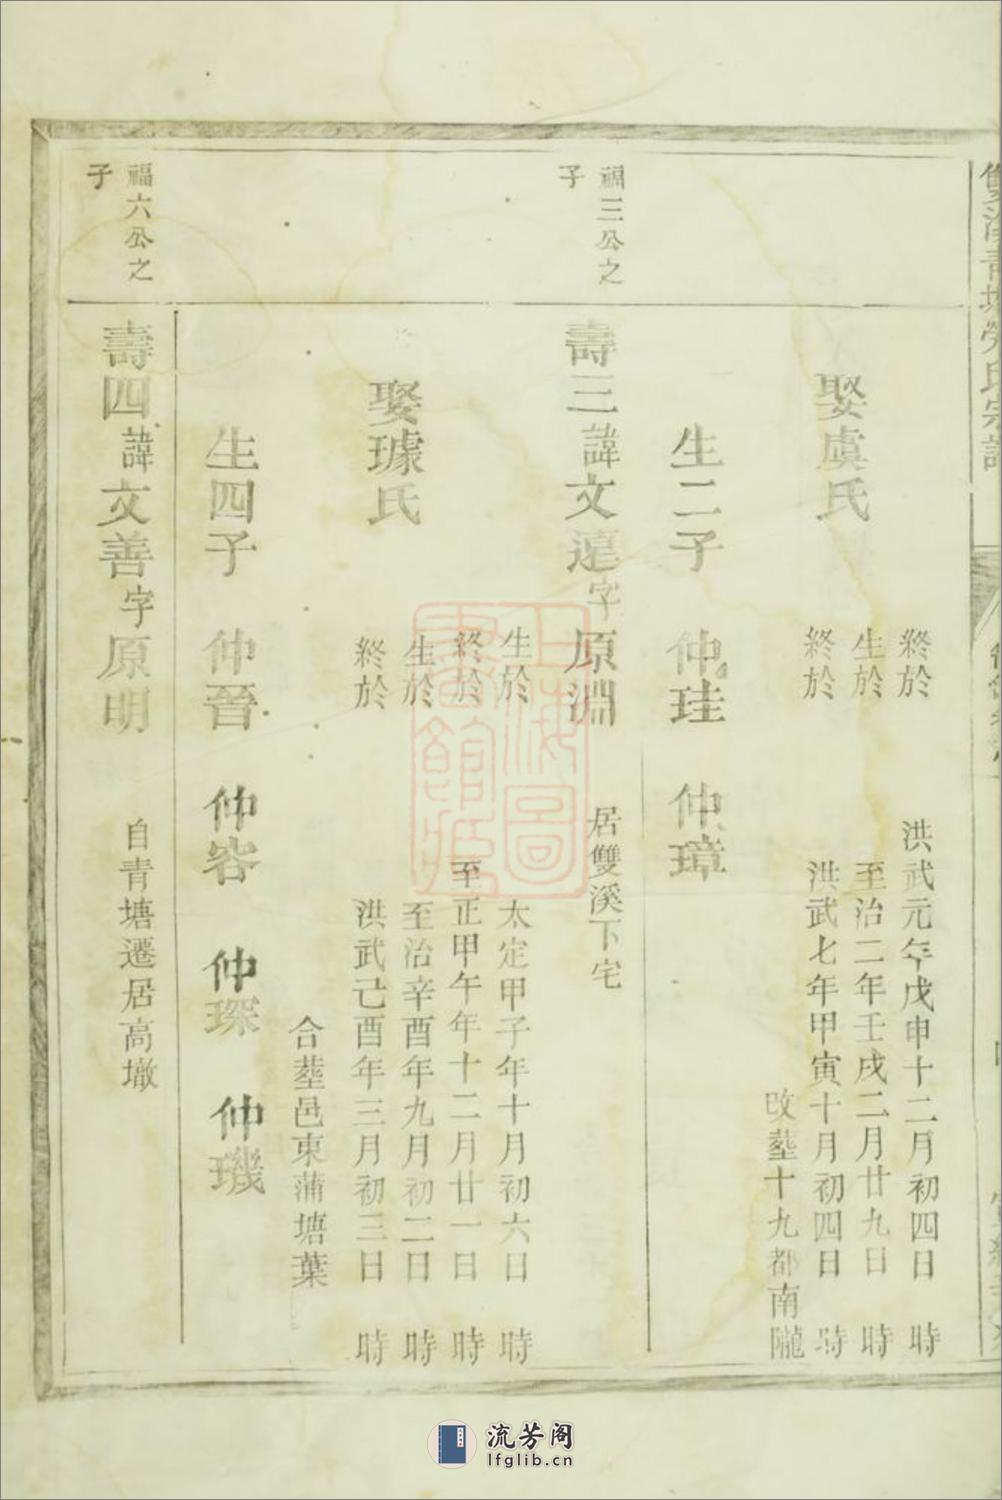 終於 洪武元年戊申十二月初四日 時
娶虞氏 生於 至治二年壬戌二月廿九日 時
終於 洪武七年甲寅十月初四日 時
改塟十九都南隴
生二子 仲珪 仲璋
福三公之
子
壽三諱文遠字原淵 居雙溪下宅
生於 太定甲子年十月初六日 時
終於 至正甲午年十二月廿一日 時
娶璩氏 生於 至治辛酉年九月初二日 時
終於 洪武己酉年三月初三日 時
合塟邑東蒲塘葉
生四子 仲晉 仲容 仲琛 仲璣
福六公之
子
壽四諱文善字原明 自青塘遷居高墩
上海圖
書館藏
流芳阁
lfglib.cn